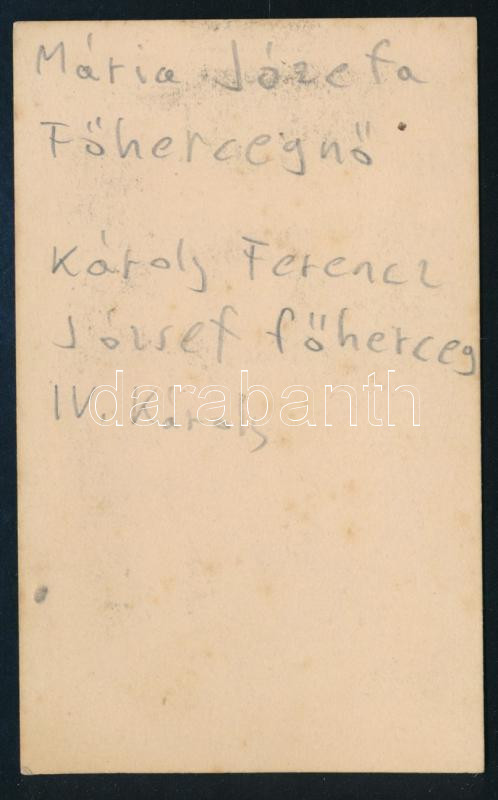 Mária Józefa
Főhercegnő
Károly Ferencz
József főherceg
IV. Károly
darabanth